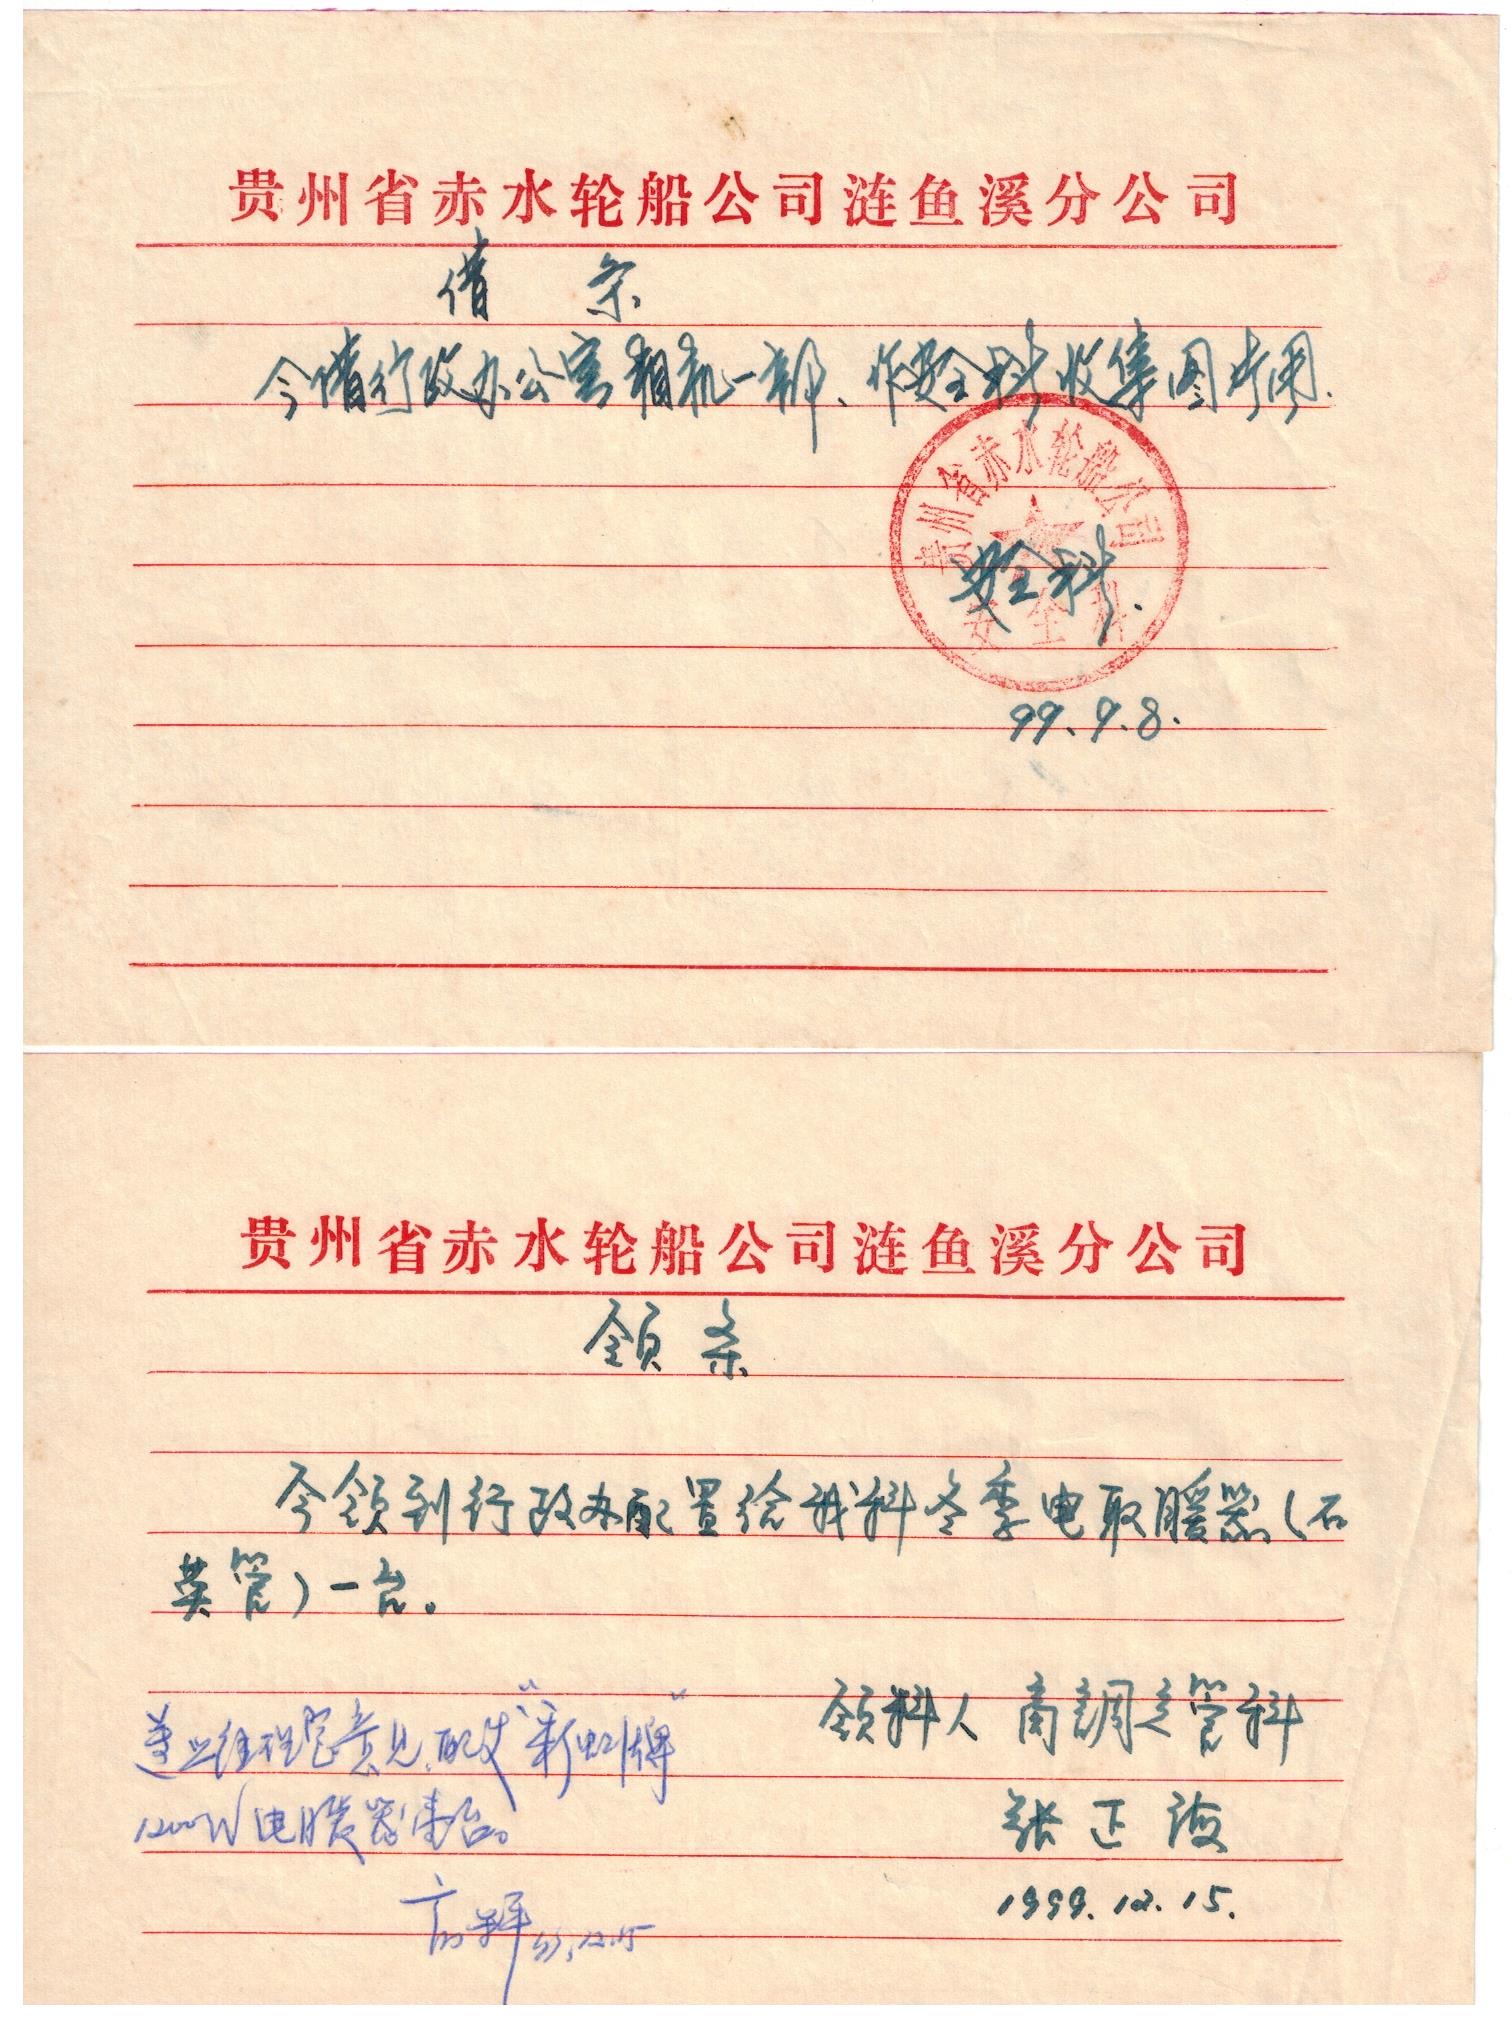 贵州省赤水轮船公司涟鱼溪分公司
借 条
今借行政办公室相机一部、作安全科收集图片用.
贵州省赤水轮船公司
安全科.
安全科
99.9.8.
贵州省赤水轮船公司涟鱼溪分公司
领 条
今领到行政办配置给我科冬季电取暖器(石
英管)一台。
领料人 商调运管科
张正
1999.12.15.
经理意见,配发"彩虹牌"
1200W电暖器壹台。
99.12.15